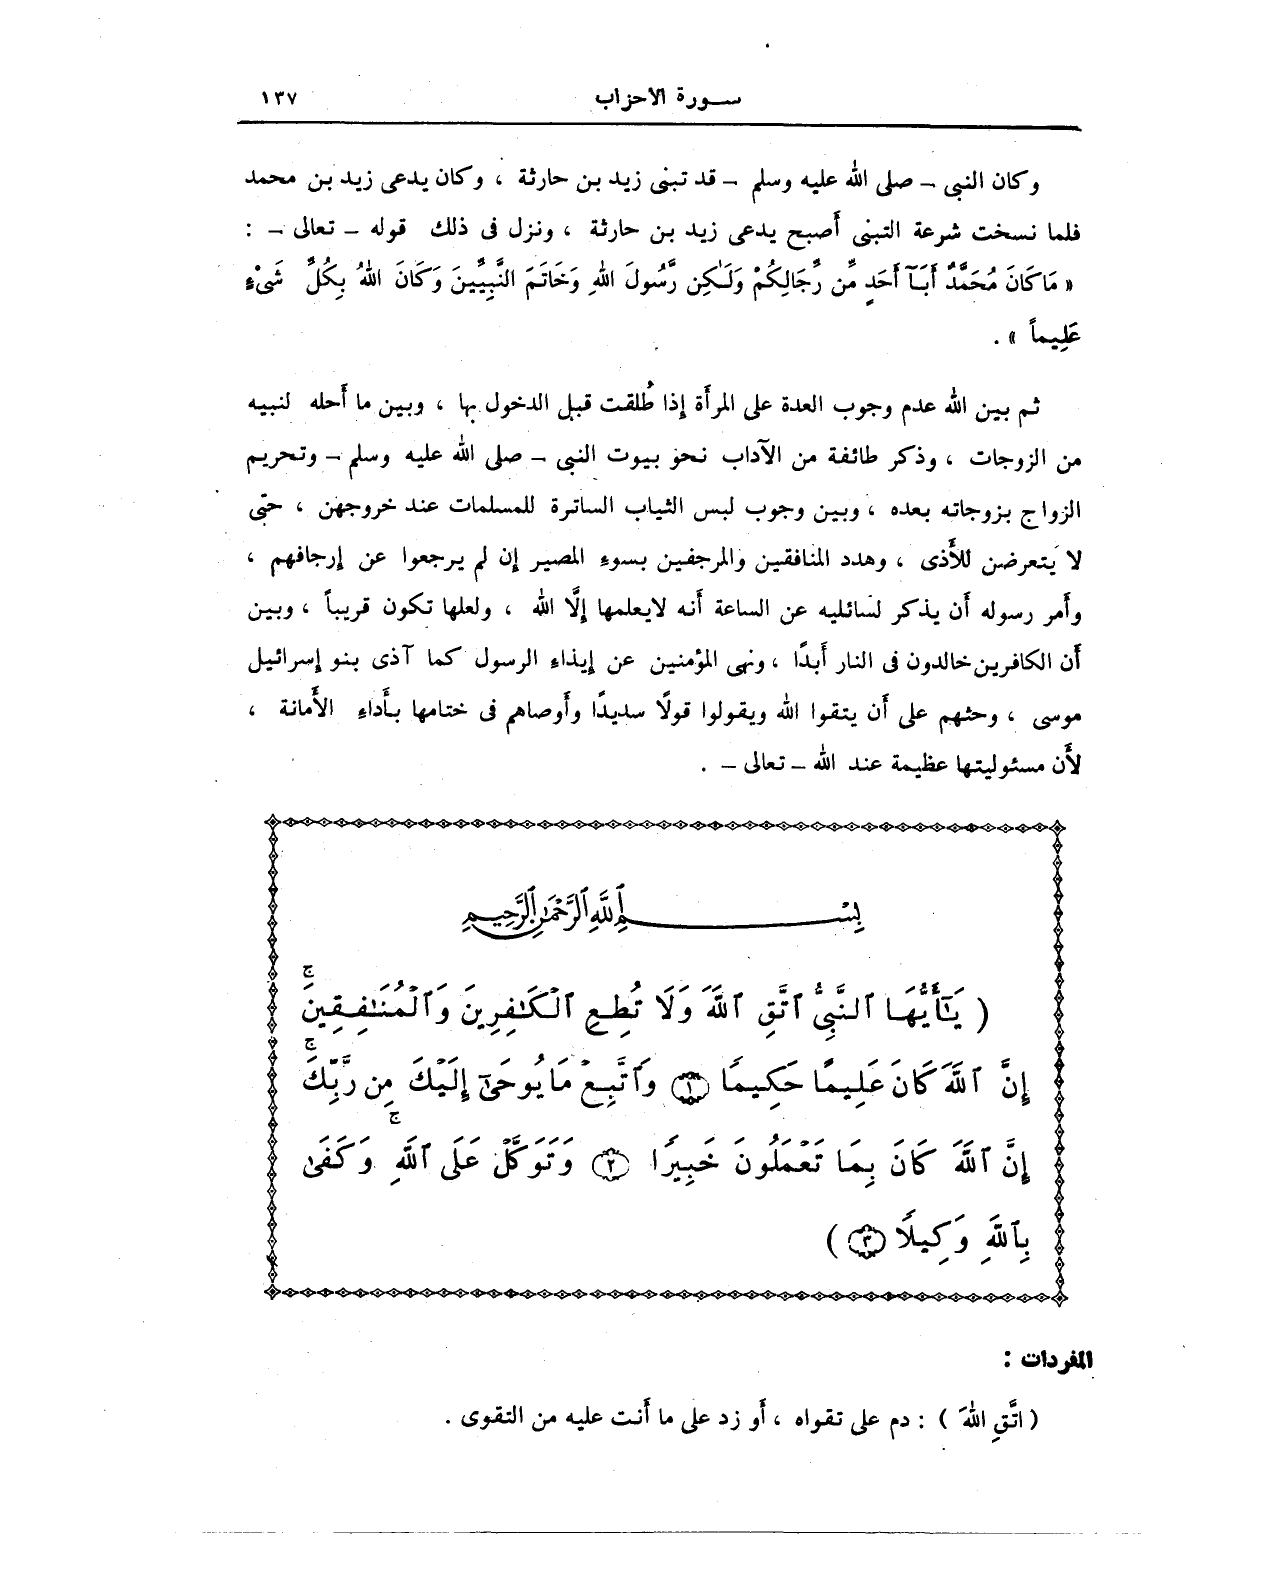 سـورة الاحزاب ١٣٧
وكان النبى – صلى الله عليه وسلم – قد تبنى زيد بن حارثة ، وكان يدعى زيد بن محمد
فلما نسخت شرعة التبنى أصبح يدعى زيد بن حارثة ، ونزل فى ذلك قوله – تعالى – :
« مَا كَانَ مُحَمَّدٌ أَبَآ أَحَدٍ مِّن رِّجَالِكُمْ وَلَـٰكِن رَّسُولَ اللهِ وَخَاتَمَ النَّبِيِّينَ وَكَانَ اللهُ بِكُلِّ شَىْءٍ
عَلِيماً » .
ثم بين الله عدم وجوب العدة على المرأة إذا طُلقت قبل الدخول بها ، وبين ما أحله لنبيه
من الزوجات ، وذكر طائفة من الآداب نحو بيوت النبى – صلى الله عليه وسلم – وتحريم
الزواج بزوجاته بعده ، وبين وجوب لبس الثياب الساترة للمسلمات عند خروجهن ، حتى
لا يتعرضن للأذى ، وهدد المنافقين والمرجفين بسوء المصير إن لم يرجعوا عن إرجافهم ،
وأمر رسوله أن يذكر لسائليه عن الساعة أنه لايعلمها إلَّا الله ، ولعلها تكون قريباً ، وبين
أن الكافرين خالدون فى النار أبدًا ، ونهى المؤمنين عن إيذاء الرسول كما آذى بنو إسرائيل
موسى ، وحثهم على أن يتقوا الله ويقولوا قولًا سديدًا وأوصاهم فى ختامها بأداء الأمانة ،
لأن مسئوليتها عظيمة عند الله – تعالى – .
بِسْمِ ٱللَّهِ ٱلرَّحْمَٰنِ ٱلرَّحِيمِ
( يَـٰٓأَيُّهَا ٱلنَّبِىُّ ٱتَّقِ ٱللَّهَ وَلَا تُطِعِ ٱلْكَـٰفِرِينَ وَٱلْمُنَـٰفِقِينَ ۚ
إِنَّ ٱللَّهَ كَانَ عَلِيمًا حَكِيمًا ۝١ وَٱتَّبِعْ مَا يُوحَىٰٓ إِلَيْكَ مِن رَّبِّكَ ۚ
إِنَّ ٱللَّهَ كَانَ بِمَا تَعْمَلُونَ خَبِيرًا ۝٢ وَتَوَكَّلْ عَلَى ٱللَّهِ ۚ وَكَفَىٰ
بِٱللَّهِ وَكِيلًا ۝٣ )
المفردات :
( اتَّقِ اللهَ ) : دم على تقواه ، أو زد على ما أنت عليه من التقوى .